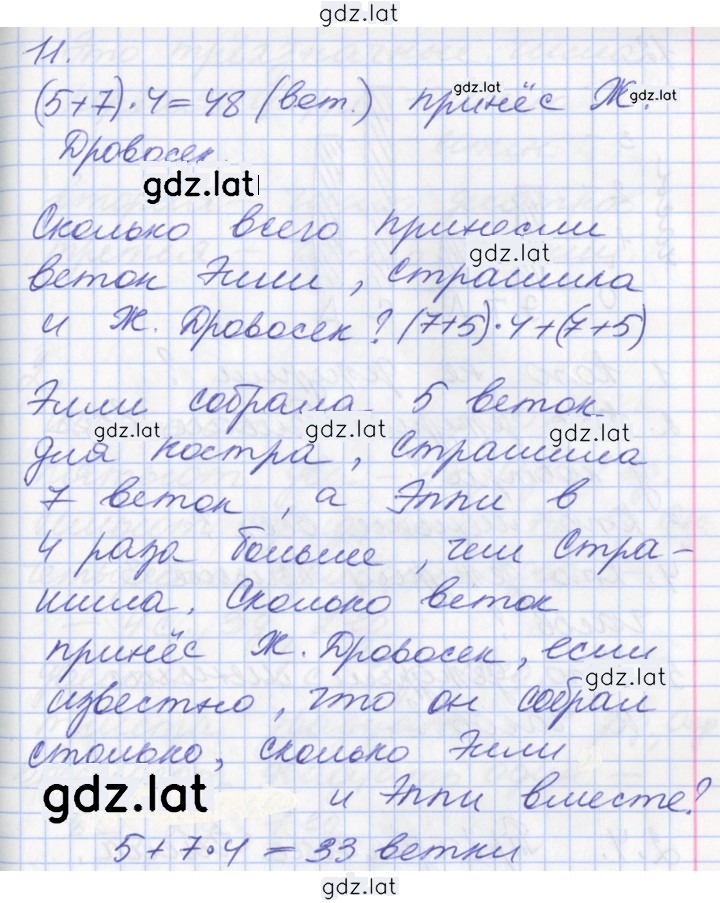 gdz.lat
11.
(5+7)·4=48 (вет.) принёс Ж.
gdz.lat
gdz.lat
Дровосек.
gdz.lat
Сколько всего принесли
gdz.lat
веток Элли, Страшила
и Ж. Дровосек? (7+5)·4+(7+5)
Элли собрала 5 веток
gdz.lat gdz.lat gdz.lat
для костра, Страшила
7 веток, а Эппи в
4 раза больше, чем Стра-
шила. Сколько веток
принёс Ж. Дровосек, если
gdz.lat
известно, что он собрал
столько, сколько Элли
gdz.lat
и Эппи вместе?
5+7·4=33 ветки
gdz.lat